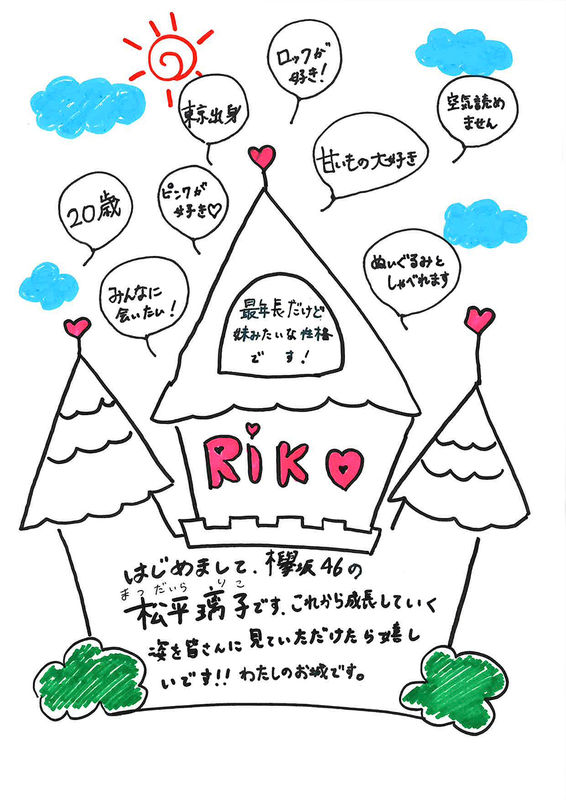 ロックが
好き!
東京出身
空気読め
ません
甘いもの大好き
20歳
ピンクが
好き♡
ぬいぐるみと
しゃべれます
みんなに
会いたい!
最年長だけど
妹みたいな性格
です!
RiKO
はじめまして、欅坂46の
まつだいら りこ
松平璃子です。これから成長していく
姿を皆さんに見ていただけたら嬉し
いです!! わたしのお城です。